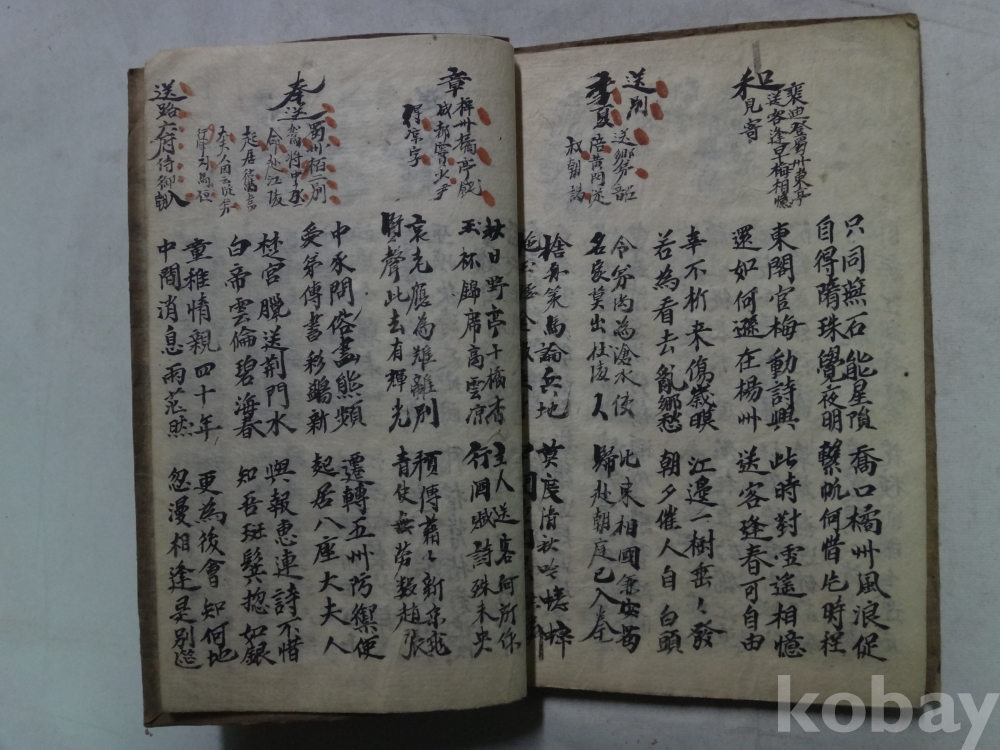 和裴迪登蜀州東亭
送客逢早梅相憶
見寄
只同燕石能星隕
自得隋珠覺夜明
喬口橘州風浪促
繫帆何惜片時程
東閣官梅動詩興
還如何遜在楊州
此時對雪遙相憶
送客逢春可自由
幸不折来傷歲暝
若為看去亂鄉愁
江邊一樹垂々發
朝夕催人自白頭
送別
季夏送鄉弟韶
陪黄門從
叔朝謁
令弟尚為滄水使
名家莫出杜陵人
比来相國兼安蜀
歸赴朝庭已入秦
捨舟策馬論兵地
莫度清秋吟蟋蟀
章梓州橘亭餞
成都竇少尹
得凉字
秋日野亭千橘香
玉杯錦席高雲凉
主人送客何所作
行酒賦詩殊未央
哀老應為難離別
賢聲此去有輝光
預傳藉々新京兆
青史無勞數趙張
奉送蜀州柏二別
駕將中丞
命赴江陵
起居衛尚書
太夫人因示從弟
行軍司馬位
中丞問俗畫熊頻
愛弟傳書彩鷁新
遷轉五州防禦使
起居八座大夫人
楚宮臘送荆門水
白帝雲偷碧海春
與報惠連詩不惜
知吾斑鬂揔如銀
送路六侍御入朝
童稚情親四十年
中間消息兩茫然
更為後會知何地
忽漫相逢是別筵
kobay